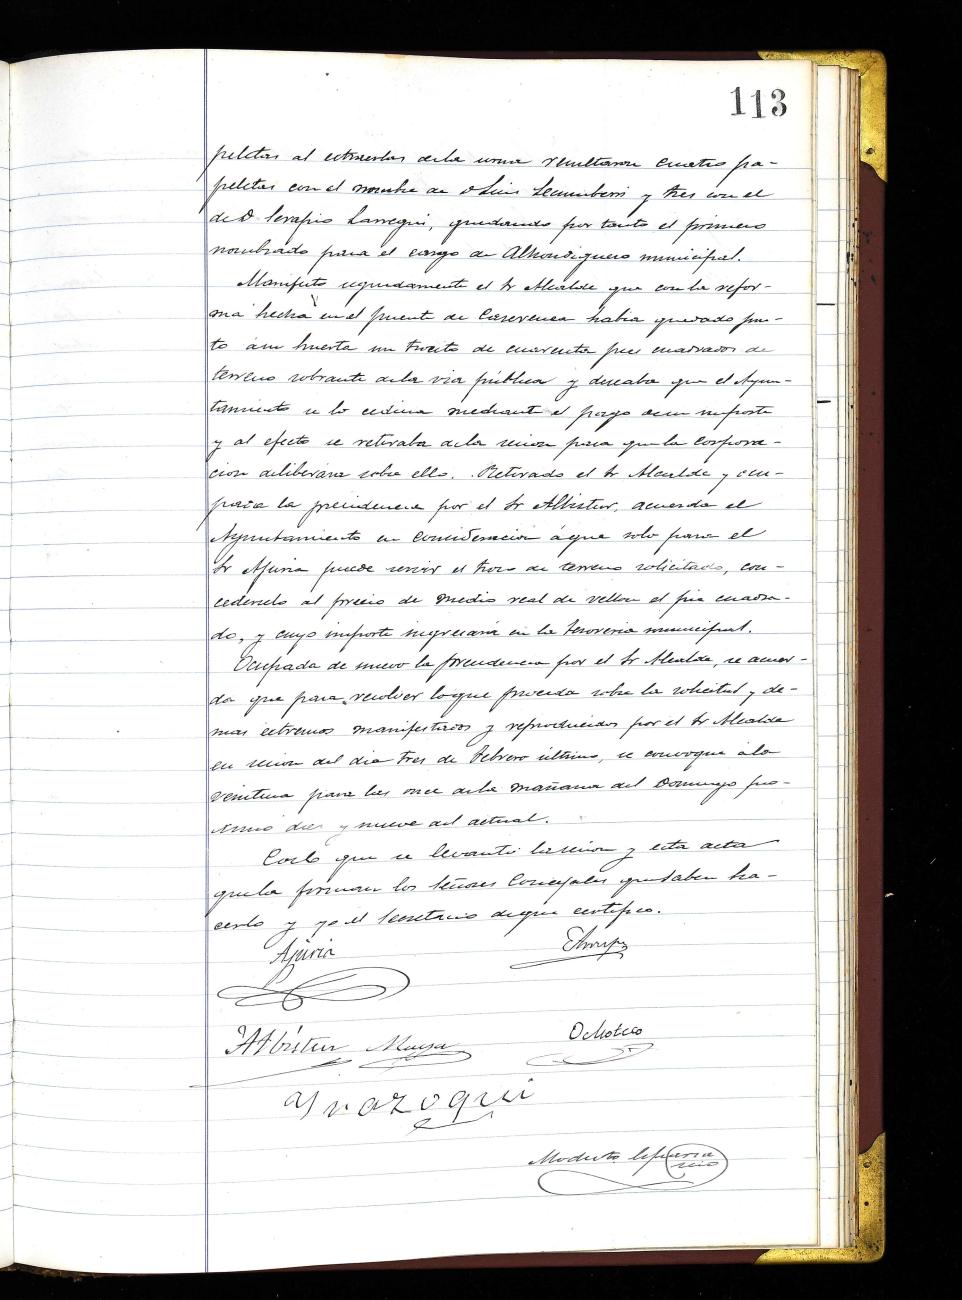 113
peletas al estraerlas de la urna resultaron cuatro pa-
peletas con el nombre de D Luis Lecumberri y tres con el
de D Serapio Larregui, quedando por tanto el primero
nombrado para el cargo de Alhondiguero municipal.
Manifestó seguidamente el Sr Alcalde que con la refor-
ma hecha en el puente de habia quedado jun-
to á su huerta un trocito de cuarenta pies cuadrados de
terreno sobrante de la via pública y deseaba que el Ayun-
tamiento se lo cediera mediante el pago de su importe
y al efecto se retiraba de la sesion para que la corpora-
cion deliberara sobre ello. Retirado el Sr Alcalde y ocu-
pada la presidencia por el Sr Albistur, acuerda el
Ayuntamiento en consideracion á que solo para el
Sr Ajuria puede servir el trozo de terreno solicitado, con-
cederselo al precio de medio real de vellon el pie cuadra-
do, y cuyo importe ingresará en la tesoreria municipal.
Ocupada de nuevo la presidencia por el Sr Alcalde, se acuer-
da que para resolver lo que proceda sobre la solicitud y de-
mas estremos manifestados y reproducidos por el Sr Alcalde
en sesion del dia tres de Febrero último, se convoque á la
veintena para las once de la mañana del Domingo pro-
simo diez y nueve del actual.
Con lo que se levantó la sesion y esta acta
que la firman los Señores Concejales que saben ha-
cerlo y yo el Secretario de que certifico.
Ajuria
Albistur
Ochoteco
Yrazoqui
Modesto
srio